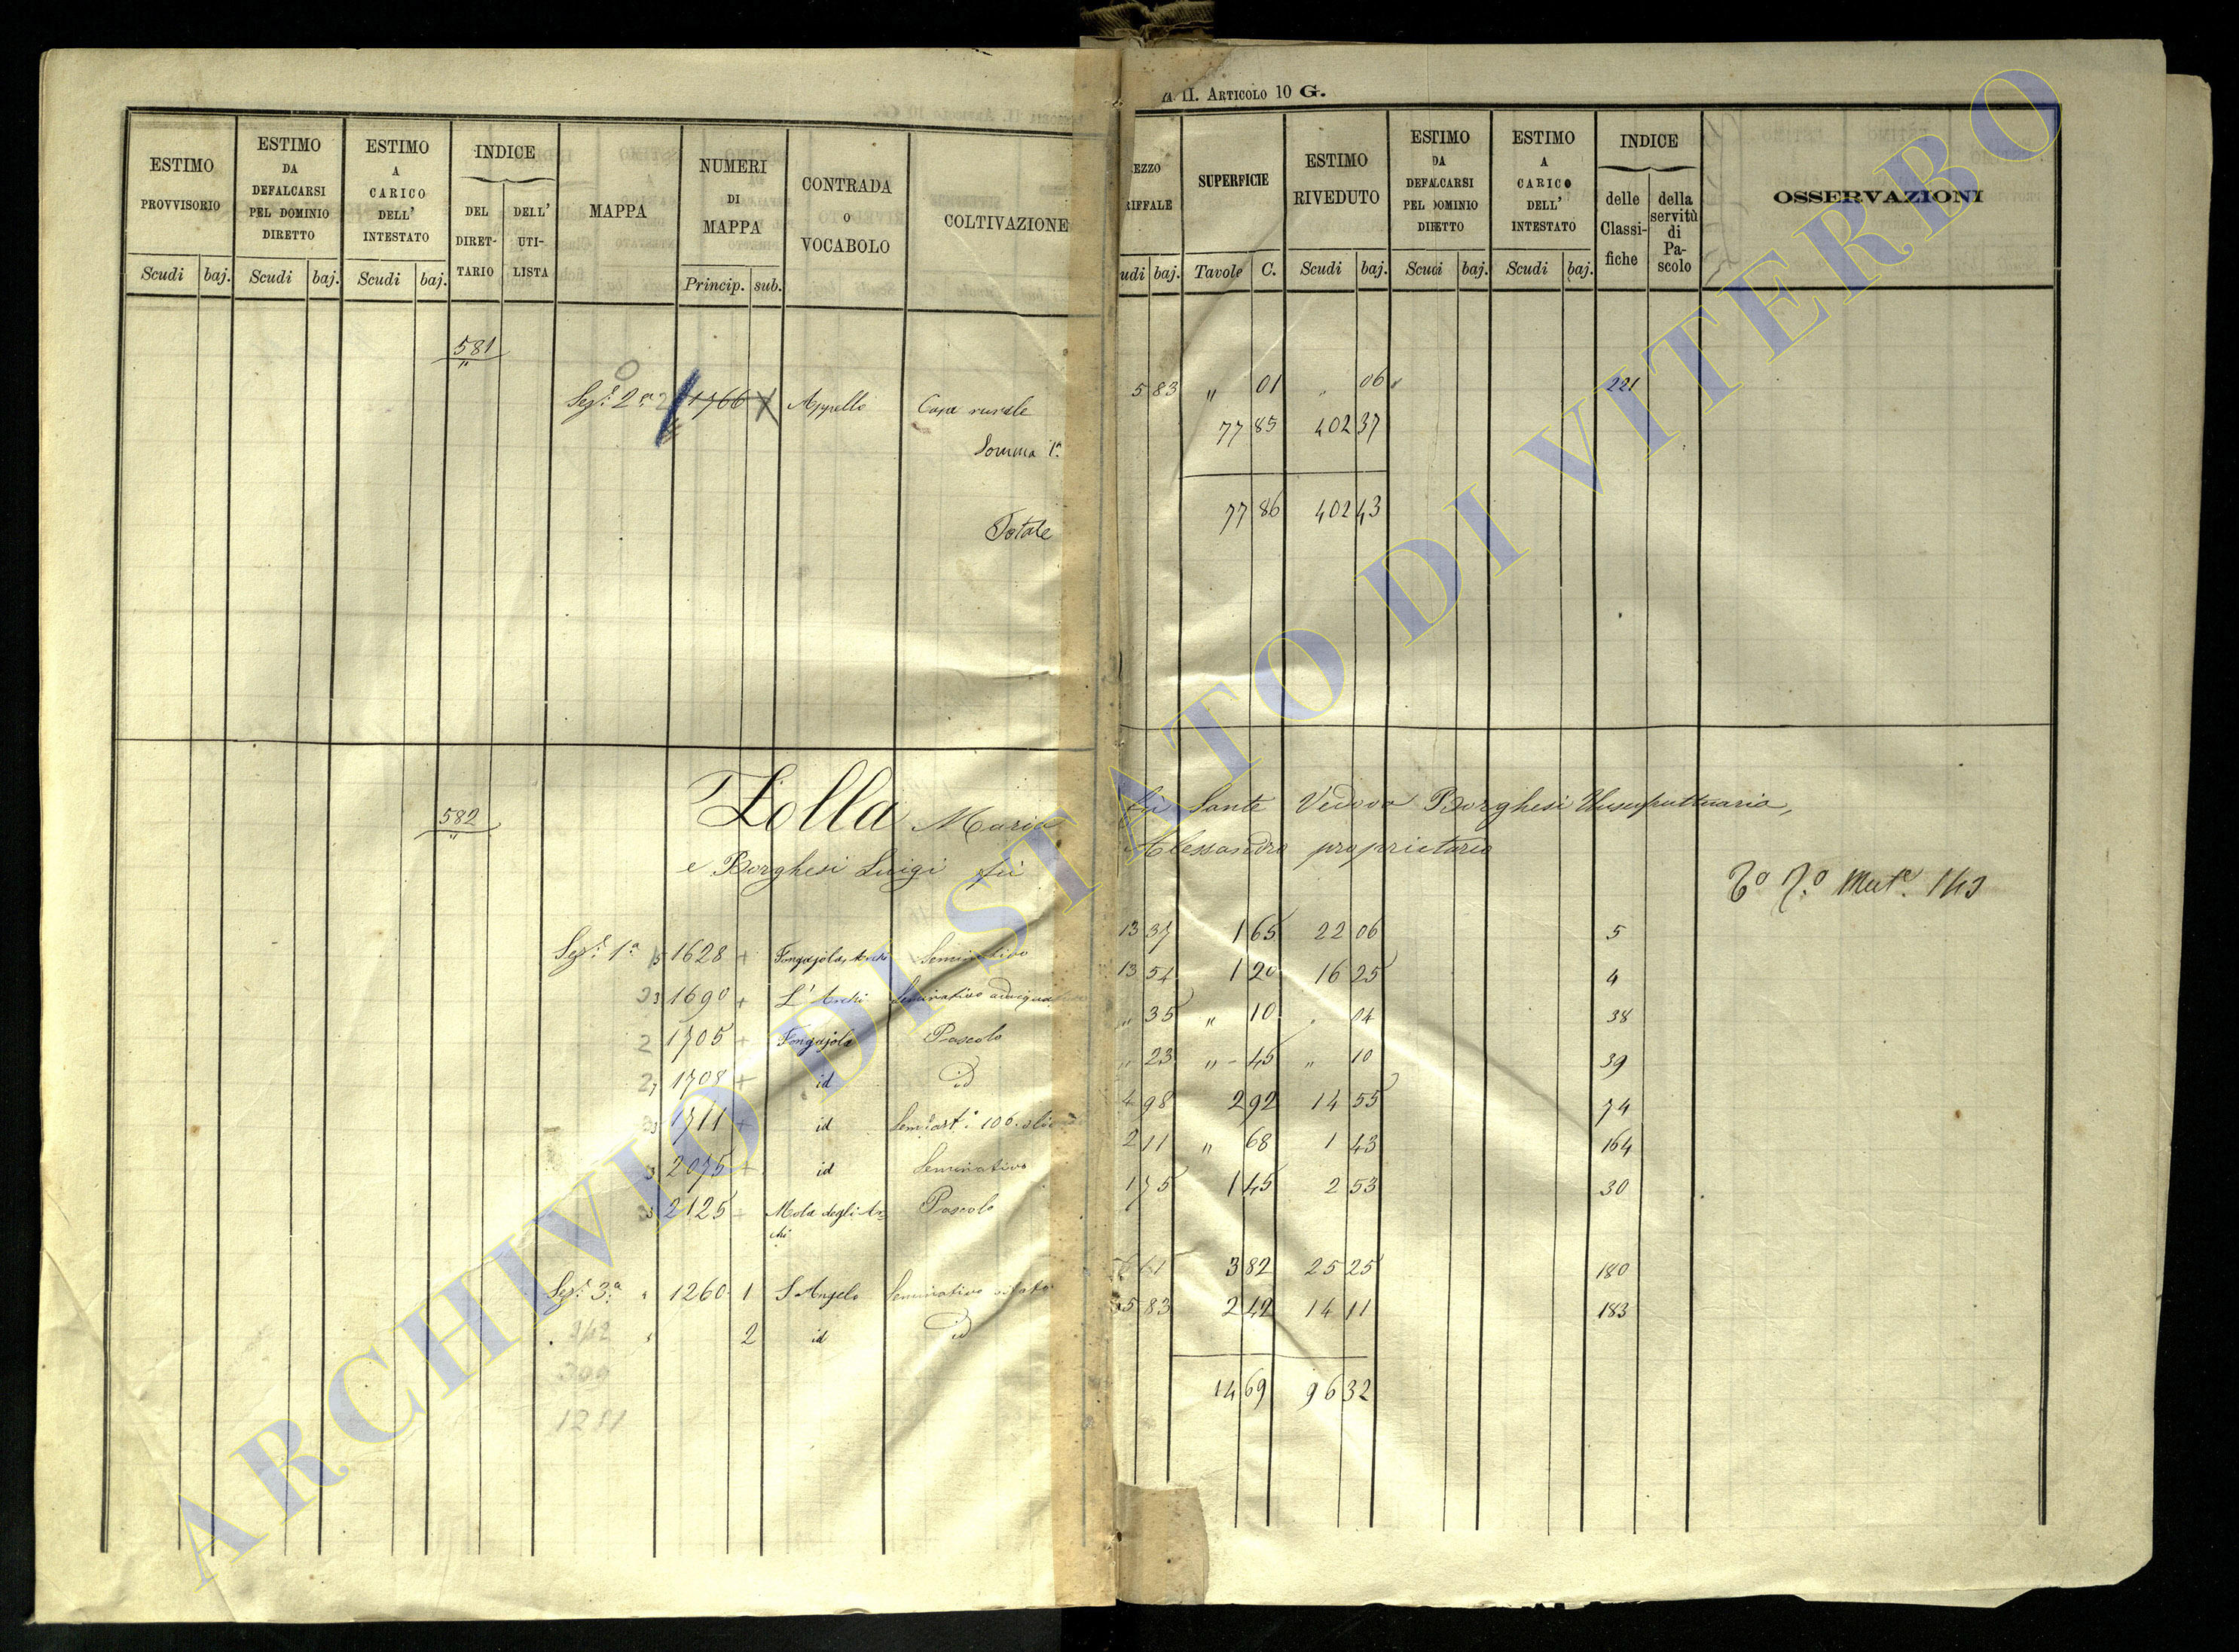 II. ARTICOLO 10 G.
ESTIMO PROVVISORIO
ESTIMO DA DEFALCARSI PEL DOMINIO DIRETTO
ESTIMO A CARICO DELL' INTESTATO
INDICE
DEL DIRET-TARIO
DELL' UTI-LISTA
MAPPA
NUMERI DI MAPPA
CONTRADA O VOCABOLO
COLTIVAZIONE
SUPERFICIE
ESTIMO RIVEDUTO
ESTIMO DA DEFALCARSI PEL DOMINIO DIRETTO
ESTIMO A CARICO DELL' INTESTATO
INDICE
delle Classi-fiche
della servitù di Pa-scolo
OSSERVAZIONI
Scudi baj. Scudi baj. Scudi baj. Princip. sub. udi baj. Tavole C. Scudi baj. Scudi baj. Scudi baj.
581
Sez. 2a 1766 Appello Casa rurale 5 83 " 01 " 06 221
Somma 1a 77 85 402 37
Totale 77 86 402 43
582
Zolla Maria fu Sante Vedova Borghesi Usufruttuaria,
e Borghesi Luigi fu Alessandro proprietario
Mut. 143
Sez. 1a 1628 + Seminativo 13 37 1 65 22 06 5
1690 + L'Archi Seminativo 13 54 1 20 16 25 4
1705 + Fongajola Pascolo " 35 " 10 " 04 38
1708 + id id " 23 " 45 " 10 39
1711 + id 4 98 2 92 14 55 74
2075 + id Seminativo 2 11 " 68 1 43 164
2125 Mola degli Archi Pascolo 1 75 1 45 2 53 30
Sez. 3a 1260 1 S. Angelo Seminativo 3 82 25 25 180
2 id id 5 83 2 42 14 11 183
14 69 96 32
ARCHIVIO DI STATO DI VITERBO